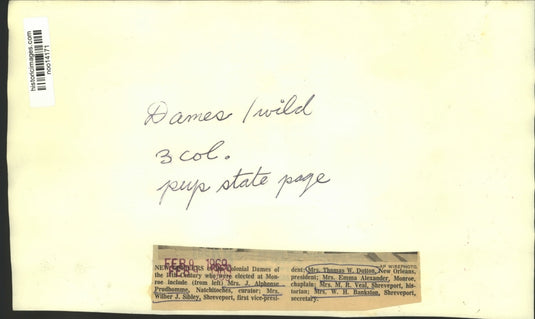 historicimages.com
noo14171
Dames / wild
3 col.
pup state page
FEB 9 1969
AP WIREPHOTO
NEW OFFICERS Colonial Dames of
the 17th Century who were elected at Mon-
roe include (from left) Mrs. J. Alphonse
Prudhomme, Natchitoches, curator; Mrs.
Wilber J. Sibley, Shreveport, first vice-presi-
dent; Mrs. Thomas W. Dutton, New Orleans,
president; Mrs. Emma Alexander, Monroe,
chaplain; Mrs. M. R. Veal, Shreveport, his-
torian; Mrs. W. H. Bankston, Shreveport,
secretary.